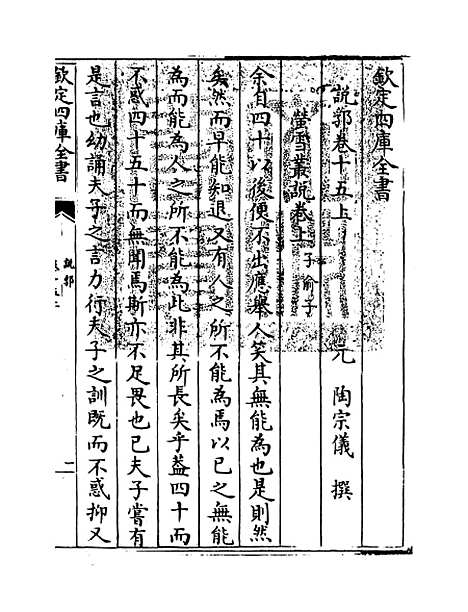 欽定四庫全書
說郛卷十五上
元 陶宗儀 撰
螢雪叢說卷上 子俞子
余自四十以後便不出應舉人笑其無能為也是則然
矣然而早能知退又有人之所不能為焉以已之無能
為而能為人之所不能為此非其所長矣乎蓋四十而
不惑四十五十而無聞焉斯亦不足畏也已夫子嘗有
是言也幼誦夫子之言力行夫子之訓既而不惑抑又
欽定四庫全書
說郛
一